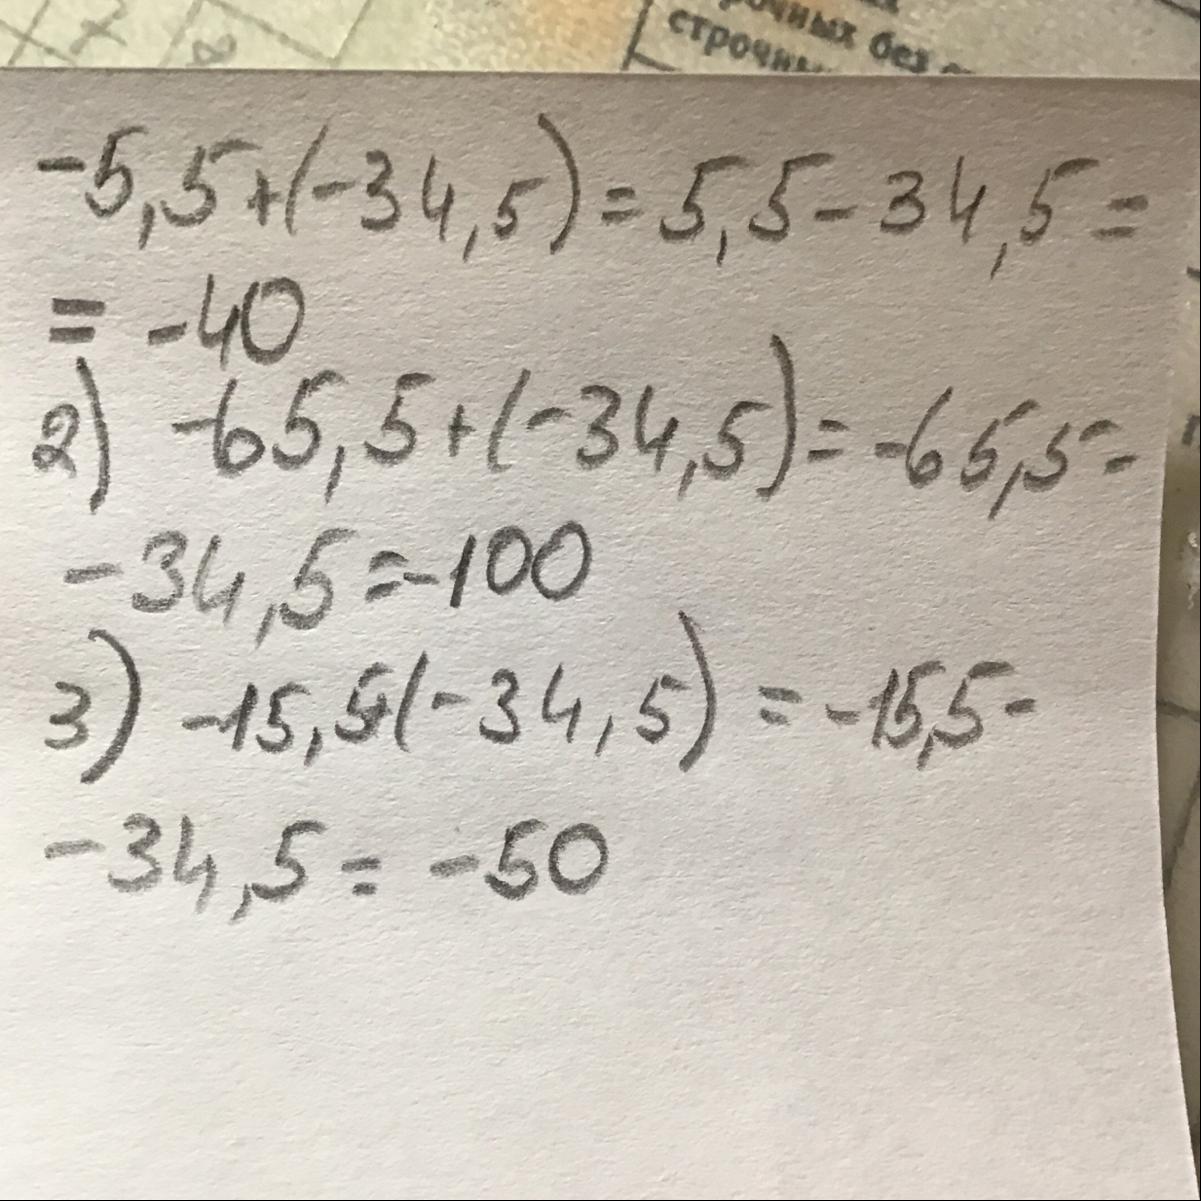 строчных без
строчны
-5,5+(-34,5)=5,5-34,5=
= -40
2) -65,5+(-34,5)=-65,5-
-34,5=-100
3) -15,5+(-34,5)=-15,5-
-34,5=-50